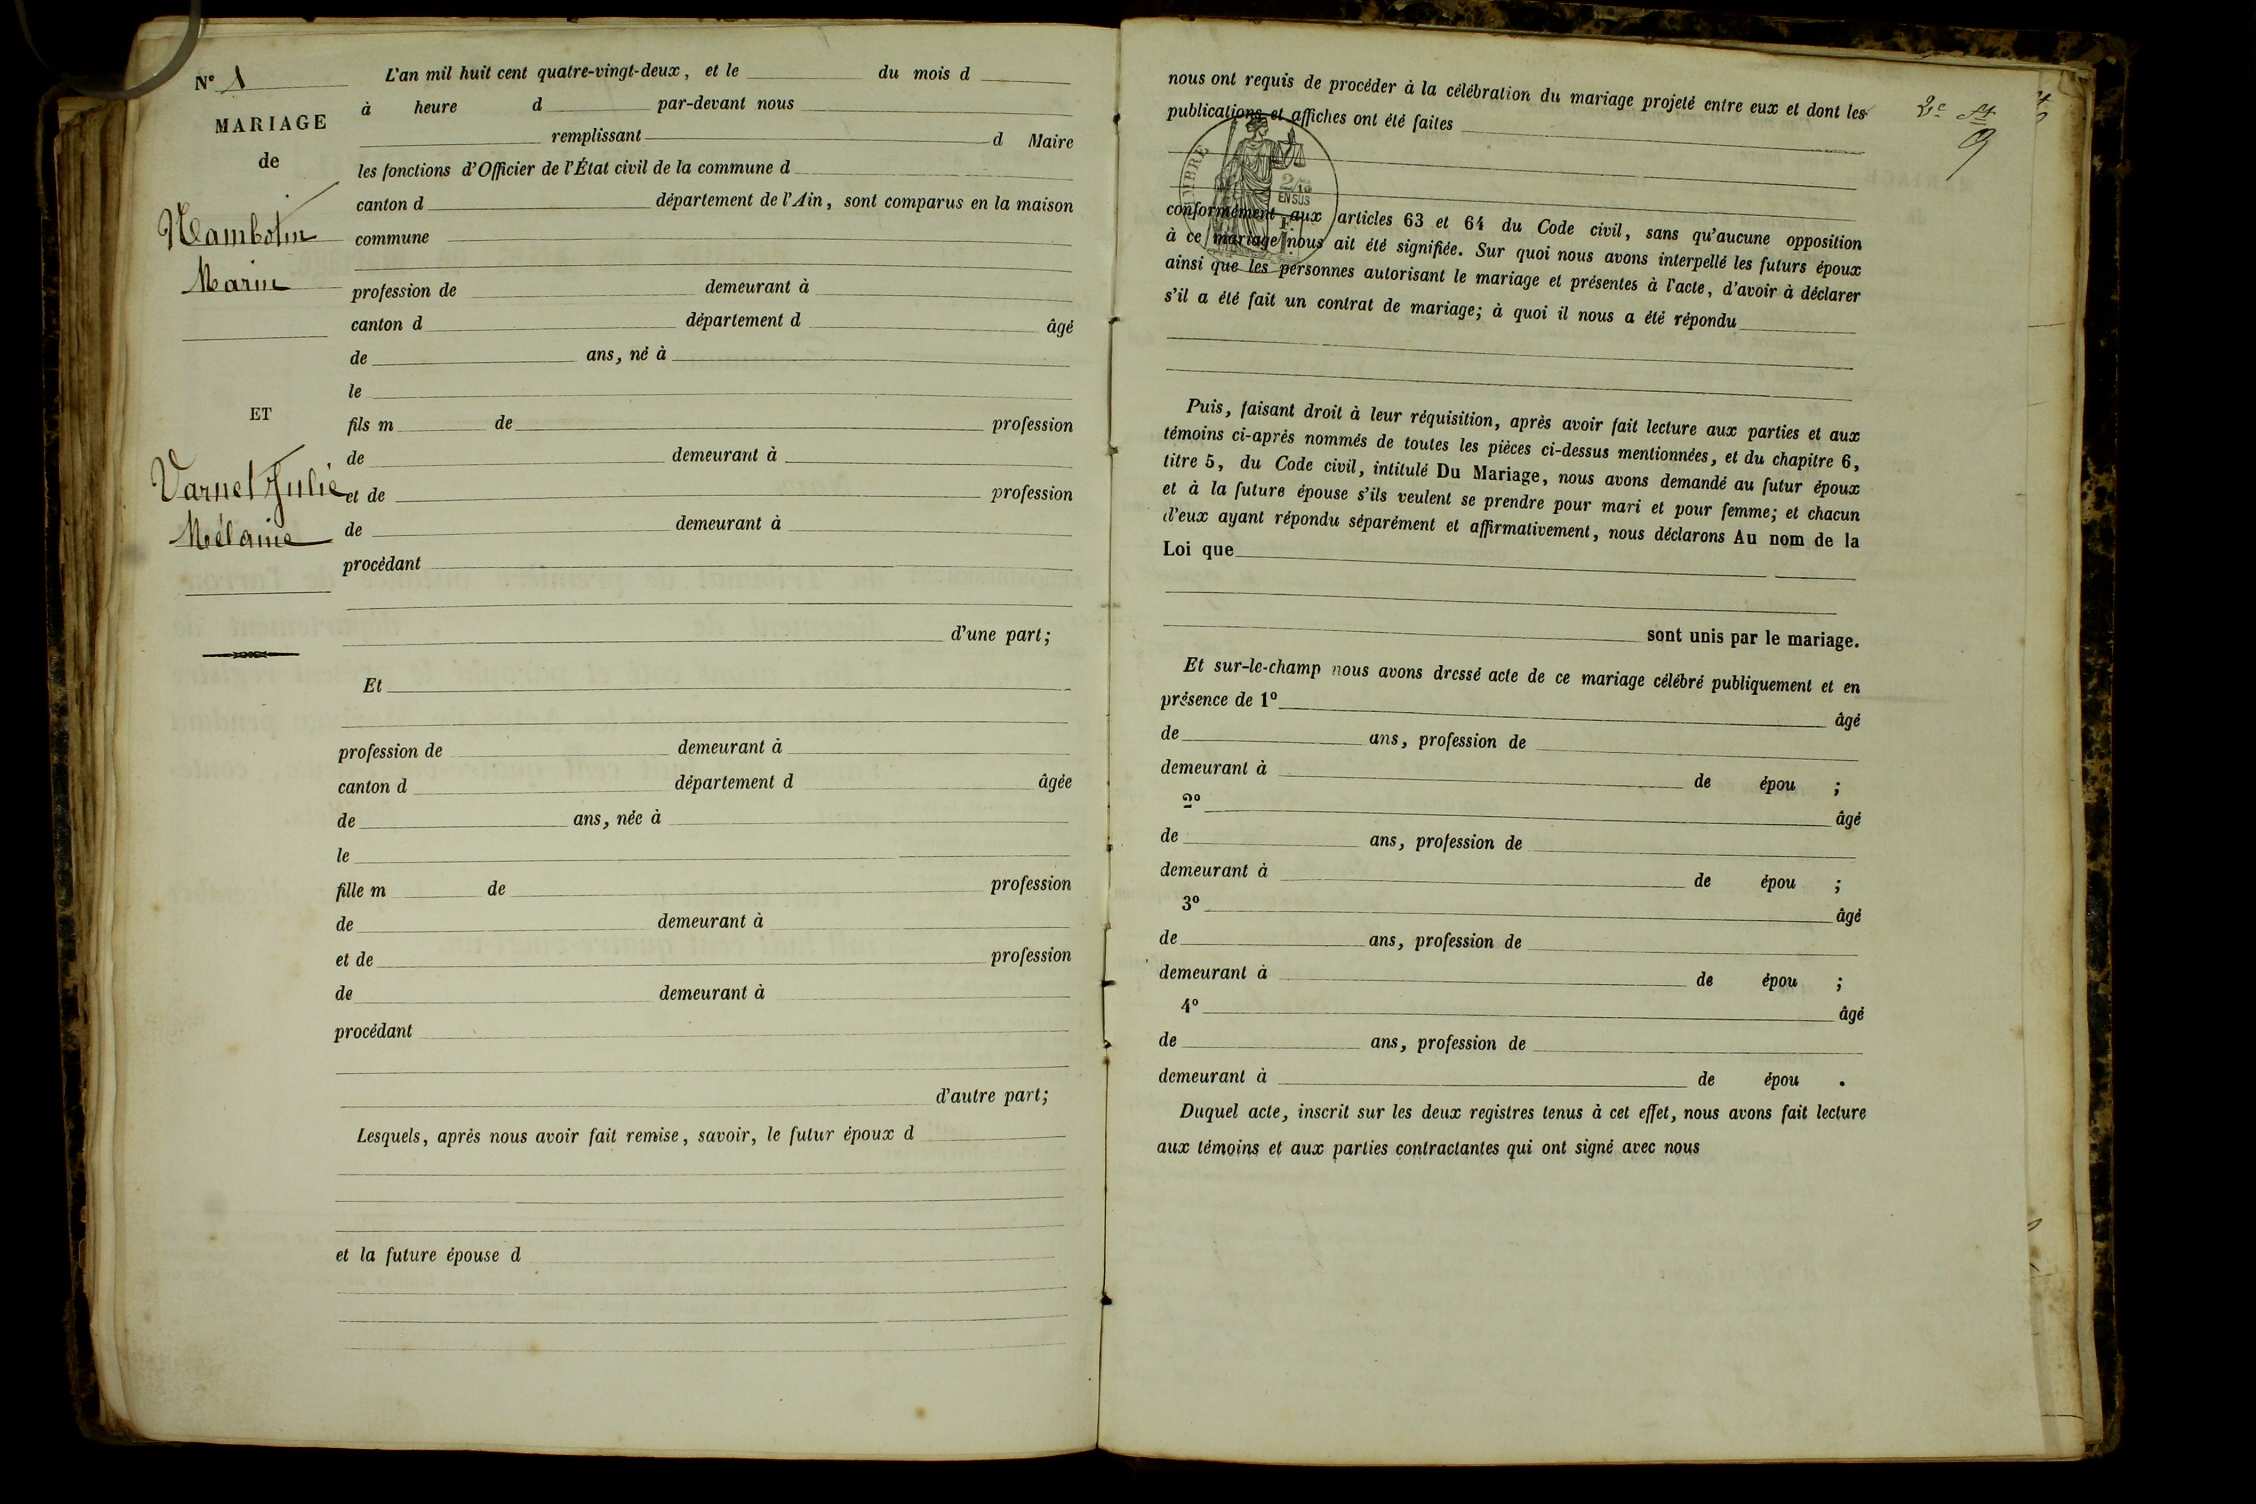 N° 1
MARIAGE
de
Nambotin
Marin
ET
Varnet Julie
Mélanie
L'an mil huit cent quatre-vingt-deux, et le du mois d
à heure d par-devant nous
remplissant d Maire
les fonctions d'Officier de l'État civil de la commune d
canton d département de l'Ain, sont comparus en la maison
commune
profession de demeurant à
canton d département d âgé
de ans, né à
le
fils m de profession
de demeurant à
et de profession
de demeurant à
procédant
d'une part;
Et
profession de demeurant à
canton d département d âgée
de ans, née à
le
fille m de profession
de demeurant à
et de profession
de demeurant à
procédant
d'autre part;
Lesquels, après nous avoir fait remise, savoir, le futur époux d
et la future épouse d
nous ont requis de procéder à la célébration du mariage projeté entre eux et dont les
publications et affiches ont été faites
conformément aux articles 63 et 64 du Code civil, sans qu'aucune opposition
à ce mariage nous ait été signifiée. Sur quoi nous avons interpellé les futurs époux
ainsi que les personnes autorisant le mariage et présentes à l'acte, d'avoir à déclarer
s'il a été fait un contrat de mariage; à quoi il nous a été répondu
Puis, faisant droit à leur réquisition, après avoir fait lecture aux parties et aux
témoins ci-après nommés de toutes les pièces ci-dessus mentionnées, et du chapitre 6,
titre 5, du Code civil, intitulé Du Mariage, nous avons demandé au futur époux
et à la future épouse s'ils veulent se prendre pour mari et pour femme; et chacun
d'eux ayant répondu séparément et affirmativement, nous déclarons Au nom de la
Loi que
sont unis par le mariage.
Et sur-le-champ nous avons dressé acte de ce mariage célébré publiquement et en
présence de 1° âgé
de ans, profession de
demeurant à de épou ;
2° âgé
de ans, profession de
demeurant à de épou ;
3° âgé
de ans, profession de
demeurant à de épou ;
4° âgé
de ans, profession de
demeurant à de épou .
Duquel acte, inscrit sur les deux registres tenus à cet effet, nous avons fait lecture
aux témoins et aux parties contractantes qui ont signé avec nous
EN SUS
9